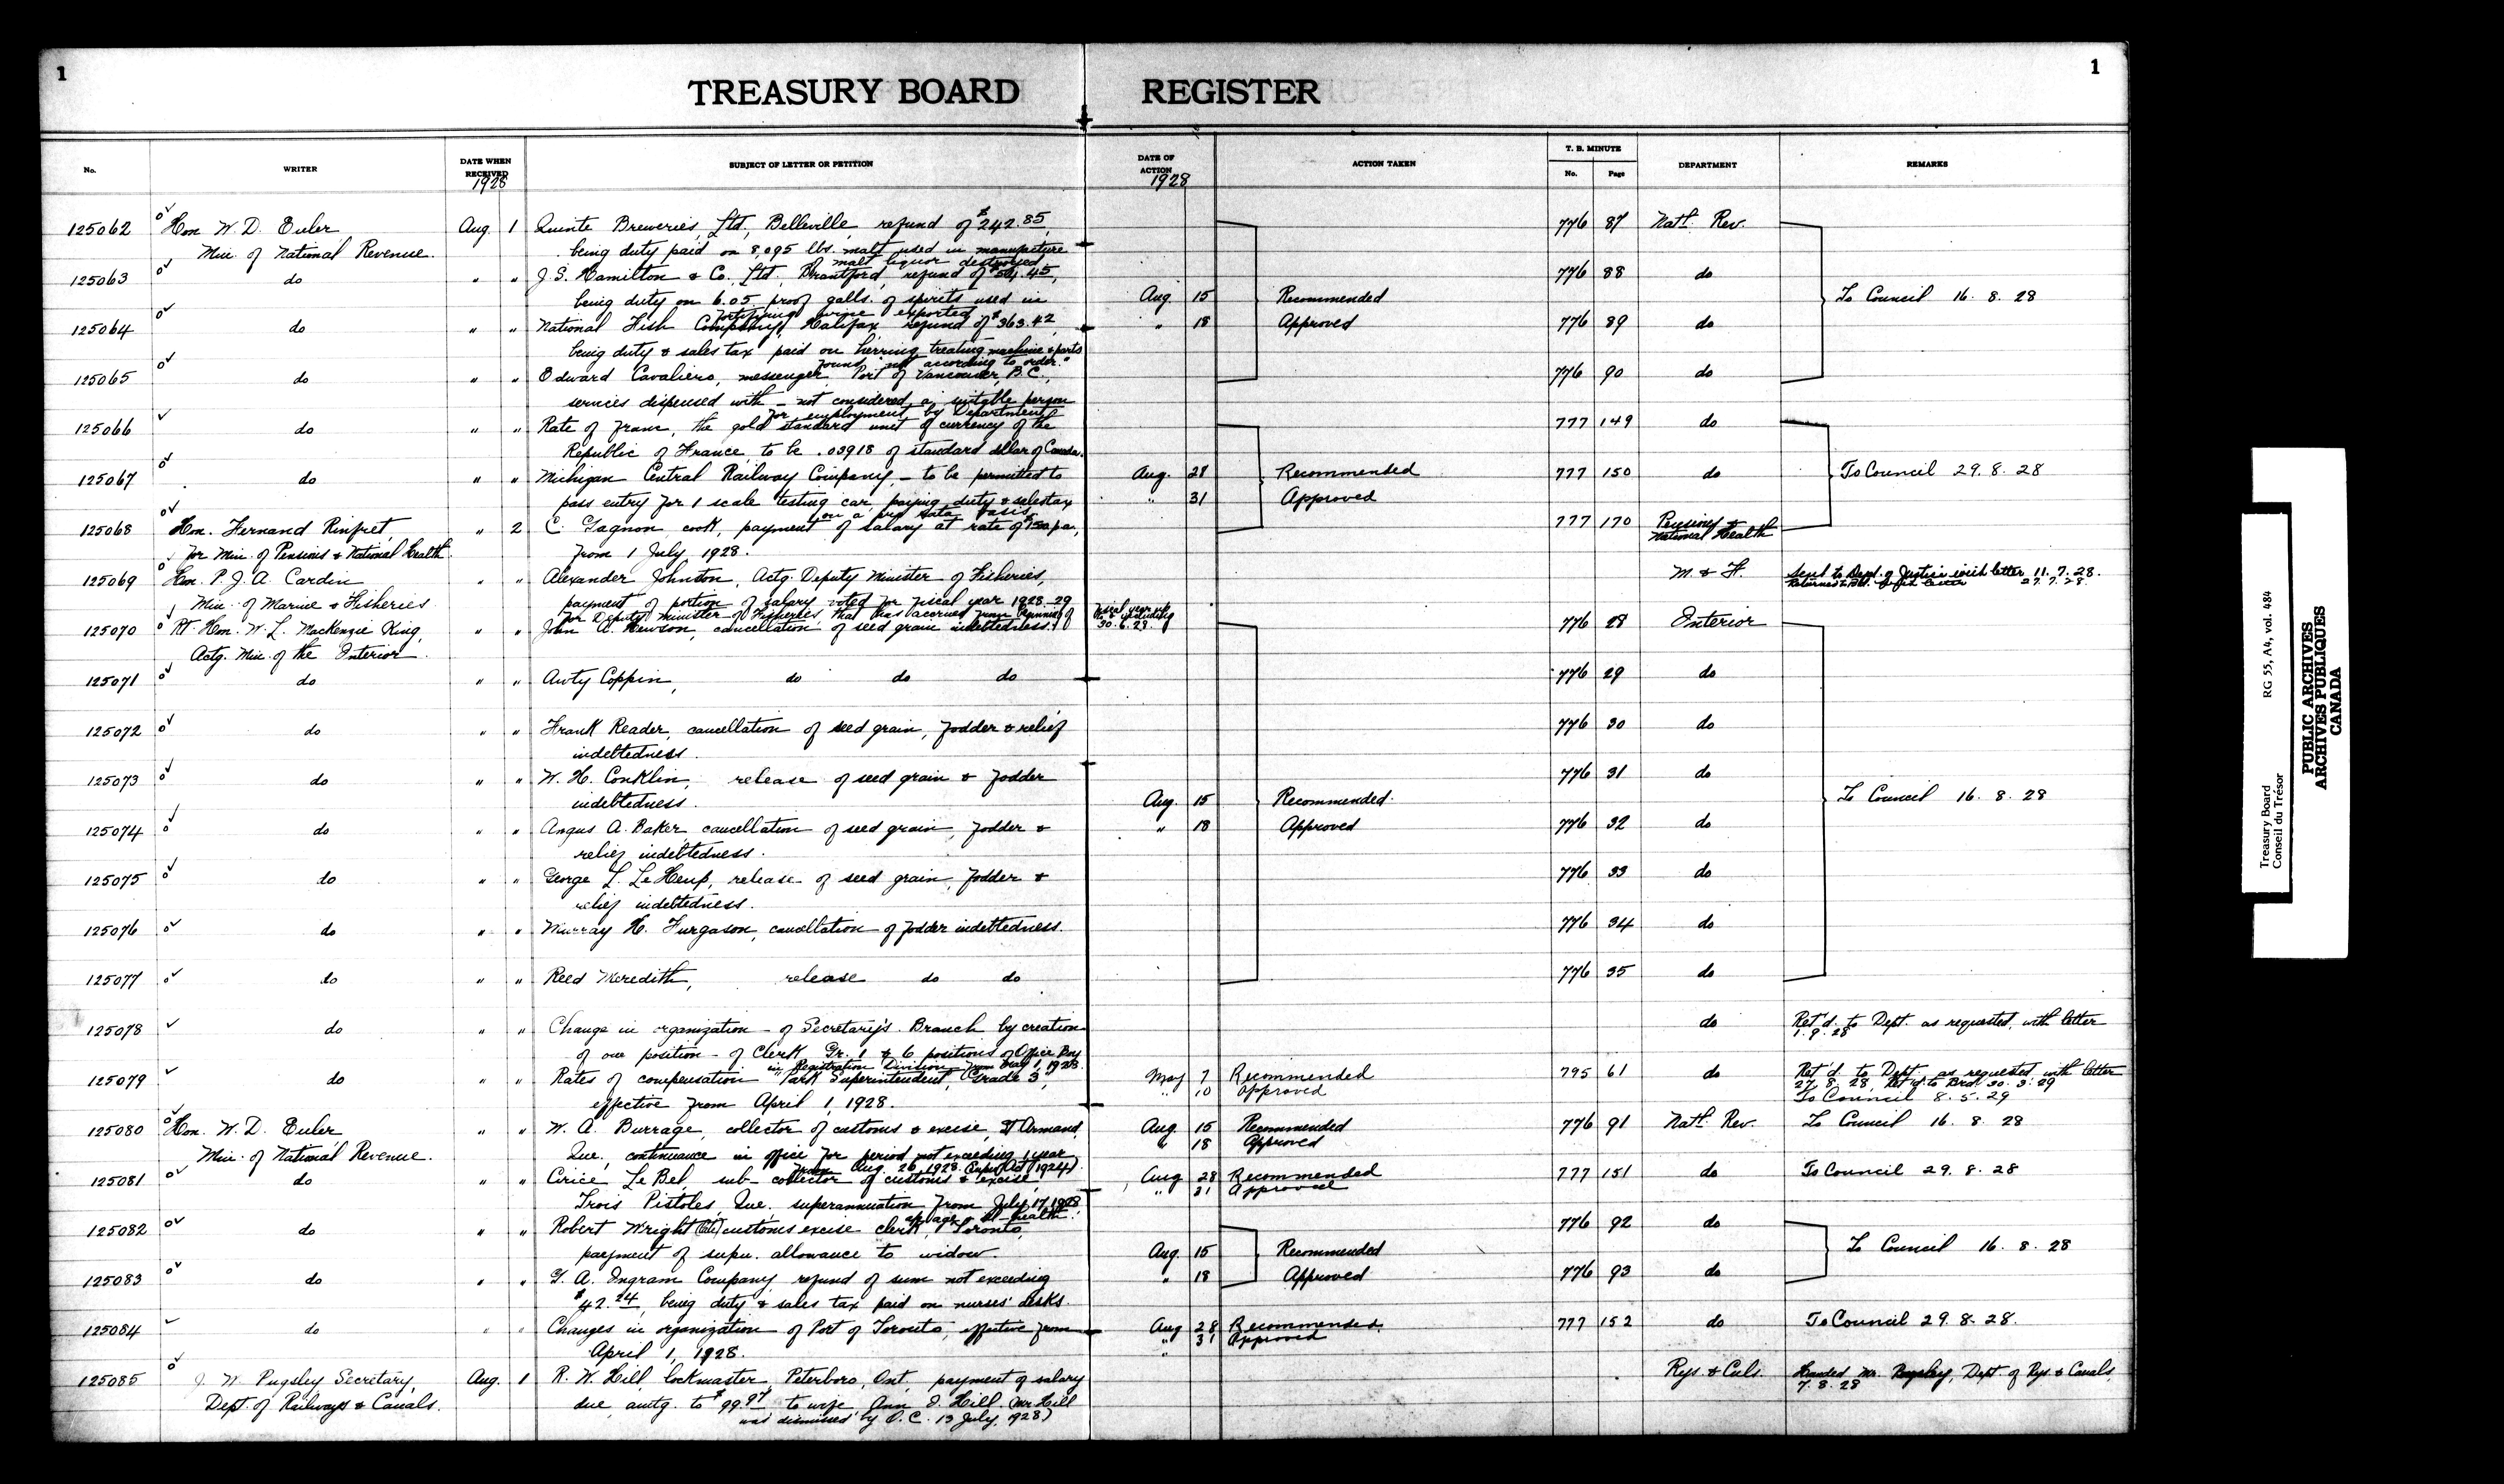 1
1
TREASURY BOARD REGISTER
No. WRITER DATE WHEN RECEIVED SUBJECT OF LETTER OR PETITION DATE OF ACTION ACTION TAKEN T. B. MINUTE No. Page DEPARTMENT REMARKS
1928 1928
125062 Hon. W. D. Euler Aug. 1 Quinte Breweries, Ltd., Belleville, refund of $242.85, 776 87 Natl. Rev.
Min. of National Revenue. being duty paid on 8,095 lbs. malt used in manufacture
of malt liquor destroyed
125063 do " " J. S. Hamilton & Co. Ltd. Brantford, refund of $54.45, 776 88 do
being duty on 6.05 proof galls. of spirits used in Aug. 15 Recommended To Council 16. 8. 28
fortifying wine exported
125064 do " " National Fish Company, Halifax refund of $363.42, " 18 Approved 776 89 do
being duty & sales tax paid on herring treating machine & parts
found "not according to order."
125065 do " " Edward Cavaliero, messenger, Port of Vancouver, B.C., 776 90 do
services dispensed with - not considered a suitable person
for employment by Department
125066 do " " Rate of franc, the gold standard unit of currency of the 777 149 do
Republic of France, to be .03918 of standard dollar of Canada.
125067 do " " Michigan Central Railway Company, - to be permitted to Aug. 28 Recommended 777 150 do To Council 29. 8. 28
pass entry for 1 scale testing car, paying duty & sales tax " 31 Approved
on a pro rata basis
125068 Hon. Fernand Rinfret, " 2 C. Gagnon, cook, payment of salary at rate of $150 pa, 777 170 Pensions & National Health
for Min. of Pensions & National Health from 1 July, 1928.
125069 Hon. P. J. A. Cardin " " Alexander Johnston, Actg. Deputy Minister of Fisheries, M. & F. Sent to Dept. of Justice with letter 11. 7. 28.
Min. of Marine & Fisheries payment of portion of salary voted for fiscal year 1928-29
for Deputy Minister of Fisheries, that has accrued from beginning of fiscal year up to & including 30. 6. 28.
125070 Rt. Hon. W. L. Mackenzie King, " " John A. Hewson, cancellation of seed grain indebtedness. 776 28 Interior
Actg. Min. of the Interior.
125071 do " " Awty Coppin, do do do 776 29 do
125072 do " " Frank Reader, cancellation of seed grain, fodder & relief 776 30 do
indebtedness.
125073 do " " W. H. Conklin, release of seed grain & fodder 776 31 do
indebtedness. Aug. 15 Recommended. To Council 16. 8. 28
125074 do " " Angus A. Baker, cancellation of seed grain, fodder & " 18 Approved 776 32 do
relief indebtedness.
125075 do " " George L. LeHeup, release of seed grain, fodder & 776 33 do
relief indebtedness.
125076 do " " Murray H. Furgason, cancellation of fodder indebtedness. 776 34 do
125077 do " " Reed Meredith, release do do 776 35 do
125078 do " " Change in organization of Secretary's Branch by creation do Ret'd. to Dept. as requested, with letter
1. 9. 28
of one position of Clerk Gr. 1 & 6 positions of Office Boy
in Registration Division from May 1, 1928.
125079 do " " Rates of compensation "Park Superintendent, Grade 3", May 7 Recommended 795 61 do Ret'd. to Dept. as requested with letter
" 10 Approved 27. 8. 28, Ret'd to Brd. 30. 3. 29
effective from April 1, 1928. To Council 8. 5. 29
125080 Hon. W. D. Euler " " W. A. Burrage, collector of customs & excise, St Armand, Aug. 15 Recommended 776 91 Natl. Rev. To Council 16. 8. 28
" 18 Approved
Min. of National Revenue. Que., continuance in office for period not exceeding 1 year
from Aug. 26, 1928. (Supn. Act 1924).
125081 do " " Cirice LeBel, sub-collector of customs & excise, Aug 28 Recommended 777 151 do To Council 29. 8. 28
" 31 Approved
Trois Pistoles, Que., superannuation from July 17, 1928,
125082 do " " Robert Wright (late) customs excise clerk, Toronto, 776 92 do
payment of supn. allowance to widow. Aug. 15 Recommended To Council 16. 8. 28
125083 do " " G. A. Ingram Company, refund of sum not exceeding " 18 Approved 776 93 do
$42.24, being duty & sales tax paid on nurses' desks.
125084 do " " Changes in organization of Port of Toronto, effective from Aug 28 Recommended. 777 152 do To Council 29. 8. 28.
" 31 Approved
April 1, 1928. "
125085 J. W. Pugsley Secretary, Aug. 1 R. W. Hill, lockmaster, Peterboro, Ont., payment of salary Rys. & Cnls. Handed Mr. Pugsley, Dept. of Rys & Canals,
7. 8. 28
Dept. of Railways & Canals. due, amtg. to $99.97 to wife, Ann J. Hill (Mr. Hill
was dismissed by O. C. 13 July, 1928)
Treasury Board RG 55, A4, vol. 484
Conseil du Trésor
PUBLIC ARCHIVES
ARCHIVES PUBLIQUES
CANADA